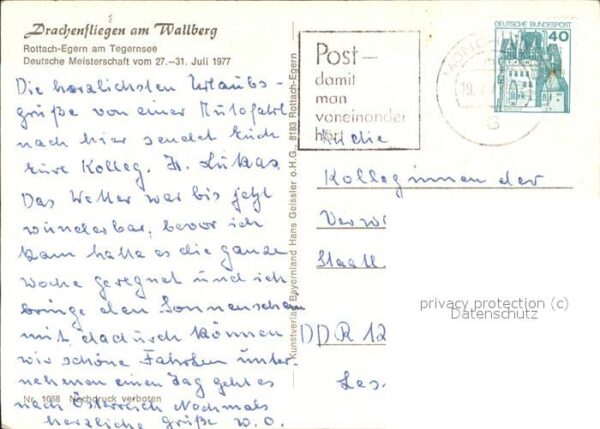 Drachenfliegen am Wallberg
Rottach-Egern am Tegernsee
Deutsche Meisterschaft vom 27.–31. Juli 1977
Die herzlichsten Urlaubs-
grüße von einer Autofahrt
nach hier sendet Euch
Eure Kolleg. H. Lukas.
Das Wetter war bis jetzt
wunderbar, bevor ich
kam hatte es die ganze
Woche geregnet und ich
bringe den Sonnenschein
mit dadurch können
wir schöne Fahrten unter-
nehmen einen Tag geht es
nach Österreich Nochmals
herzliche Grüße w. o.
Nr. 1068 Nachdruck verboten
Kunstverlag Bayermland Hans Geissler o.H.G., 8183 Rottach-Egern
Post –
damit
man
voneinander
hört
DEUTSCHE BUNDESPOST
40
19.7.
An die
Kolleginnen der
Verw
Staatl.
DDR 12
privacy protection (c)
Datenschutz